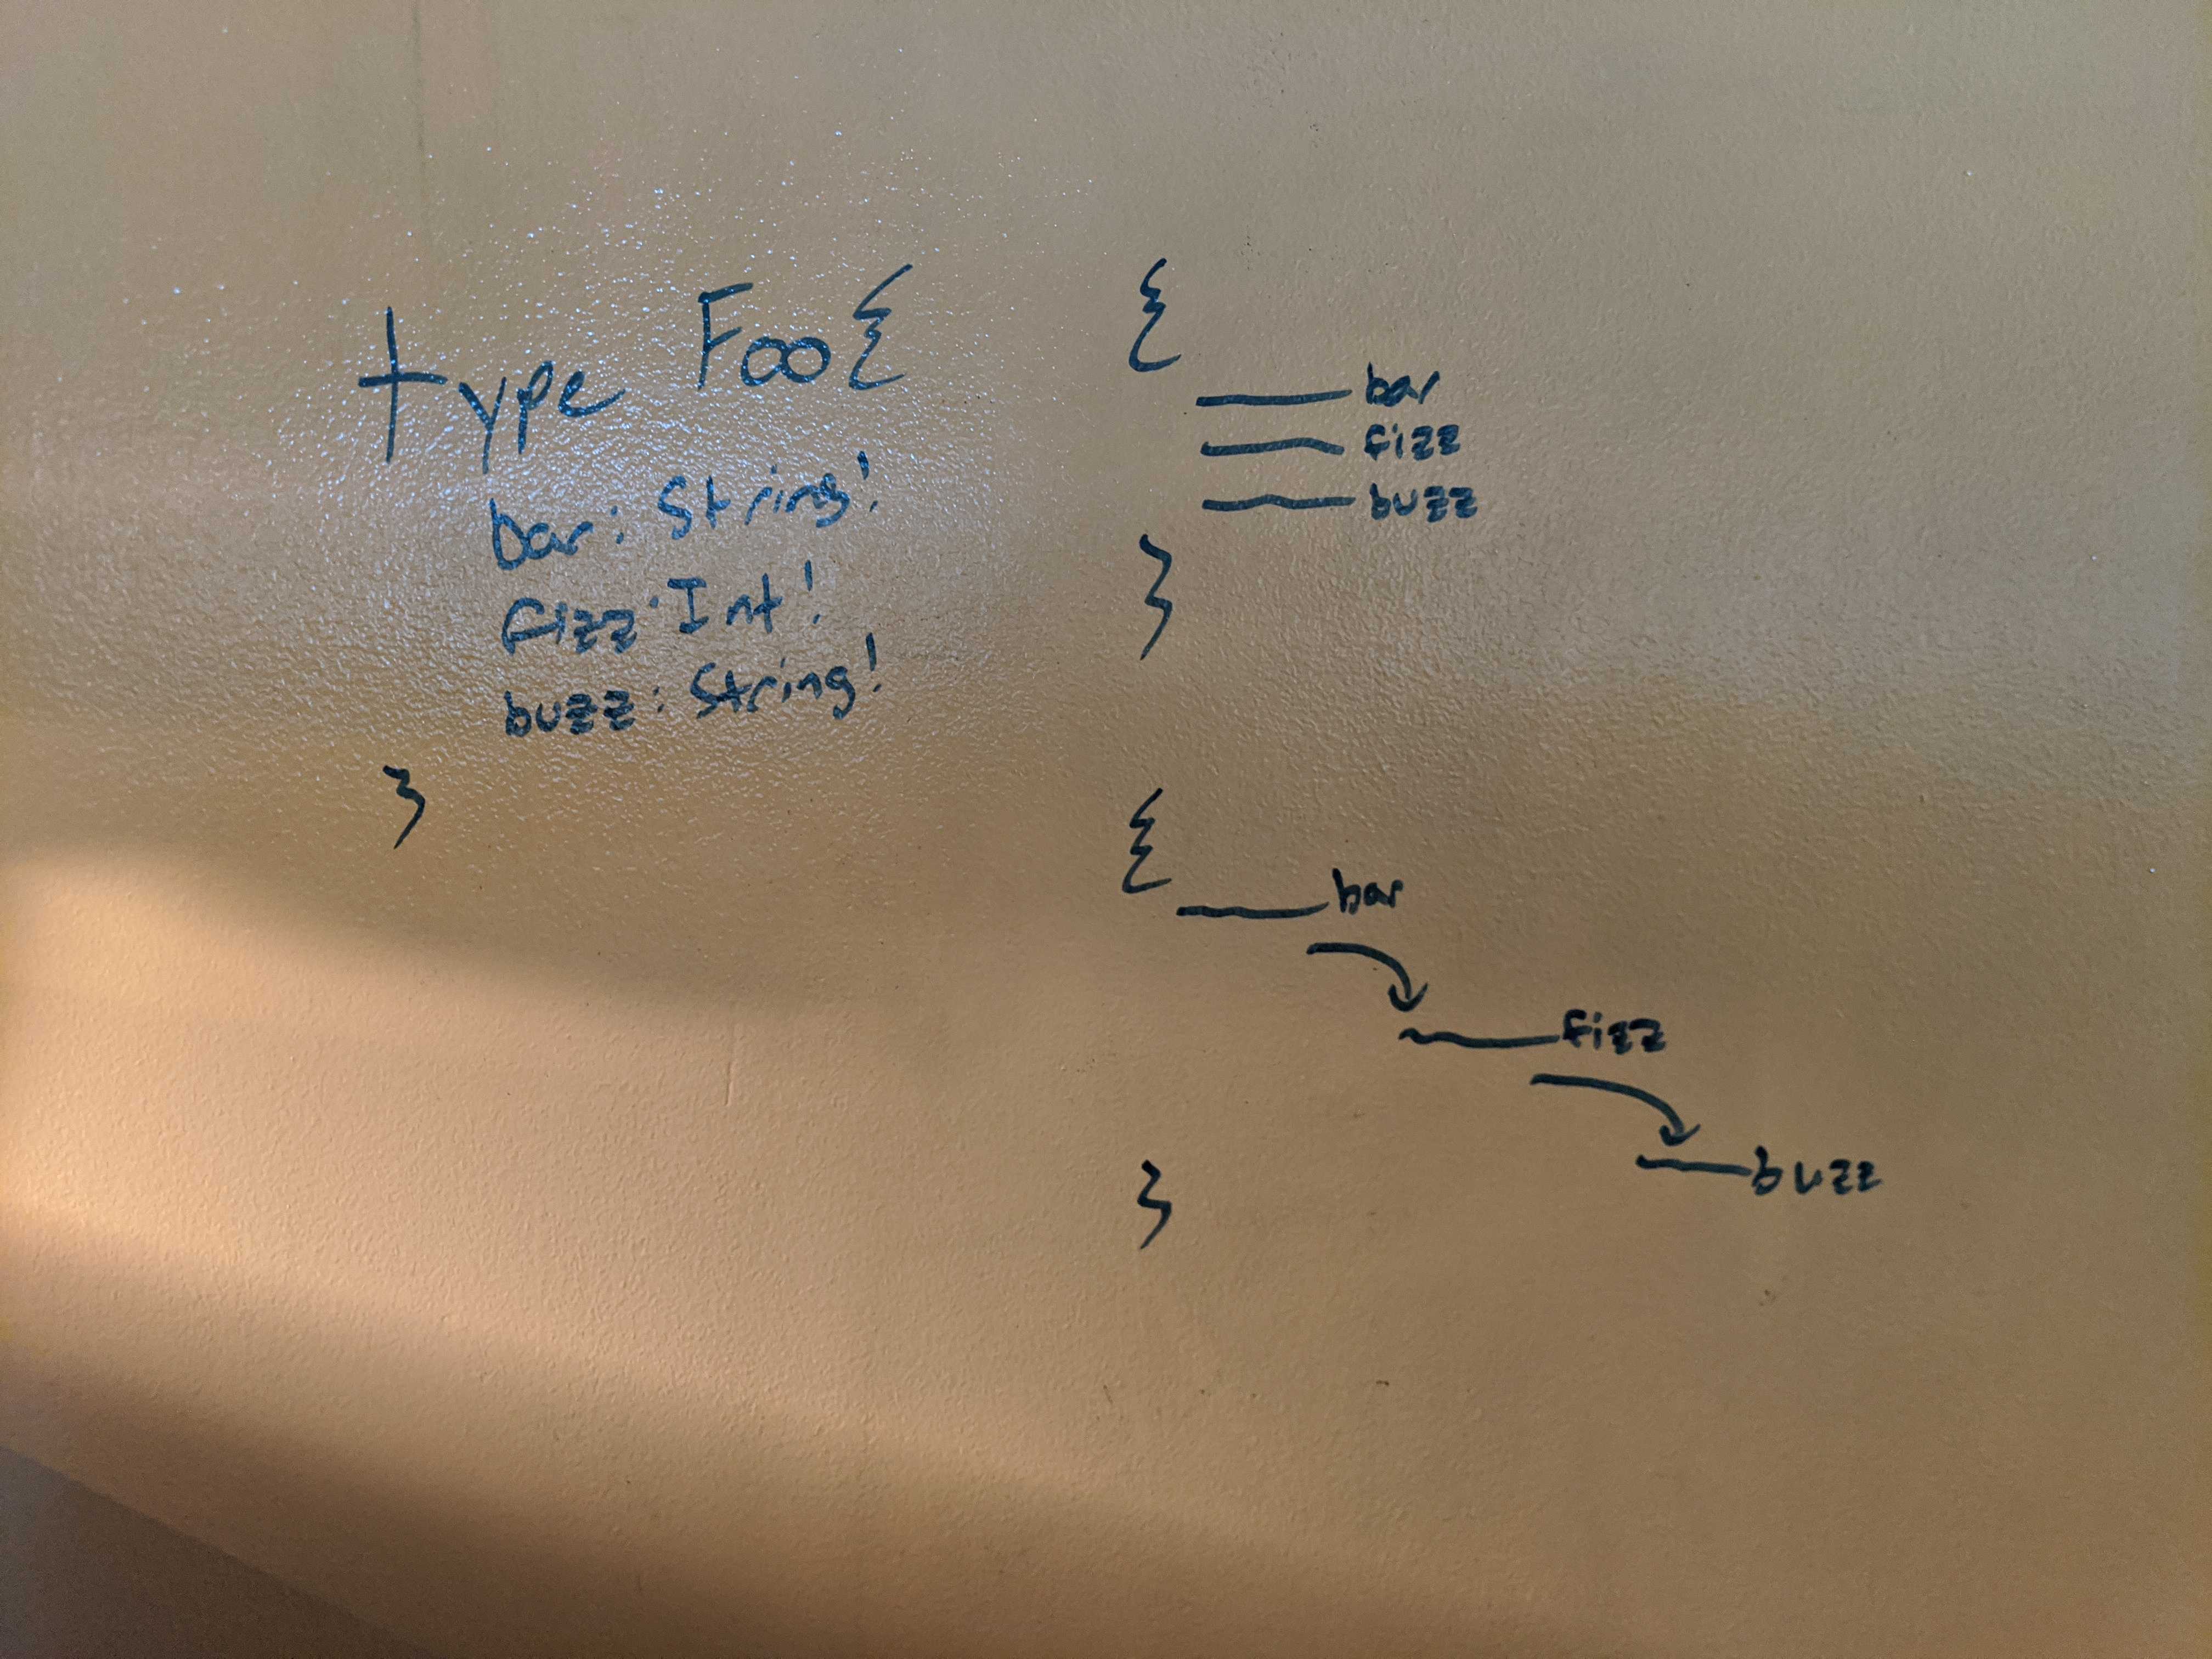 type Foo {
bar: String!
fizz: Int!
buzz: String!
}
{
bar
fizz
buzz
}
{
bar
fizz
buzz
}